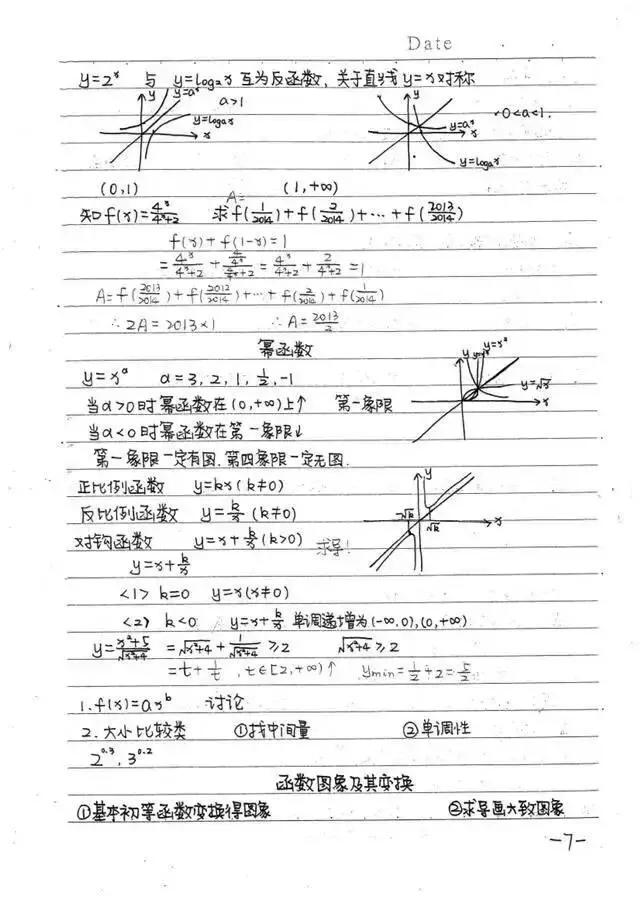 Date
y=2ˣ 与 y=log₂x 互为反函数,关于直线 y=x对称
y y=aˣ a>1 y=logax x
y 0<a<1. y=aˣ x y=logax
(0,1) (1,+∞)
知f(x)=4ˣ/(4ˣ+2) A= 求f(1/2014)+f(2/2014)+…+f(2013/2014)
f(x)+f(1-x)=1
=4ˣ/(4ˣ+2)+(4/4ˣ)/(4/4ˣ+2)=4ˣ/(4ˣ+2)+2/(4ˣ+2)=1
A=f(2013/2014)+f(2012/2014)+…+f(2/2014)+f(1/2014)
∴2A=2013×1 ∴A=2013/2
幂函数
y=xᵃ a=3,2,1,1/2,-1
y x y=√x
当a>0时幂函数在(0,+∞)上↑ 第一象限
当a<0时幂函数在第一象限↓
第一象限一定有图.第四象限一定无图.
正比例函数 y=kx(k≠0)
反比例函数 y=k/x(k≠0)
对钩函数 y=x+k/x(k>0) 求导!
y -√k √k x
y=x+k/x
<1> k=0 y=x(x≠0)
<2> k<0 y=x+k/x 单调递增为(-∞.0),(0,+∞)
y=(x²+5)/√(x²+4) =√(x²+4)+1/√(x²+4)≥2 √(x²+4)≥2
=t+1/t,t∈[2,+∞)↑ ymin=1/2+2=5/2
1.f(x)=axᵇ 讨论
2.大小比较类 ①找中间量 ②单调性
2^0.3,3^0.2
函数图象及其变换
①基本初等函数变换得图象 ②求导画大致图象
-7-